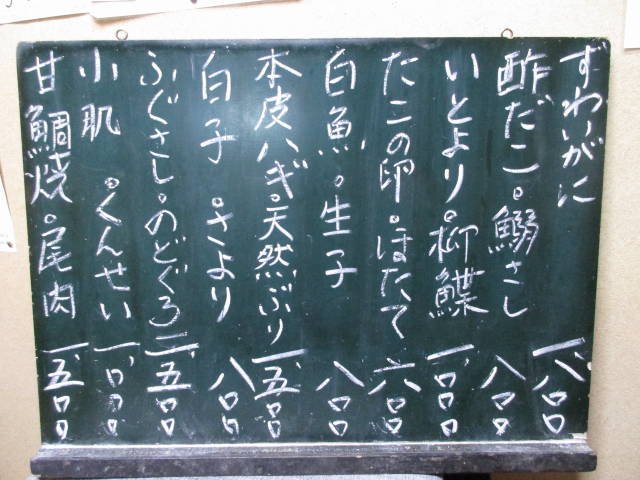 ずわいがに 一、八〇〇
酢だこ。鰯さし 八〇〇
いとより。柳鰈 一、〇〇〇
たこの卵。ほたて 六〇〇
白魚。生子 八〇〇
本皮ハギ。天然ぶり 一、五〇〇
白子。さより 八〇〇
ふぐさし。のどぐろ 二、五〇〇
小肌。くんせい 一、〇〇〇
甘鯛焼。尾肉 一、五〇〇